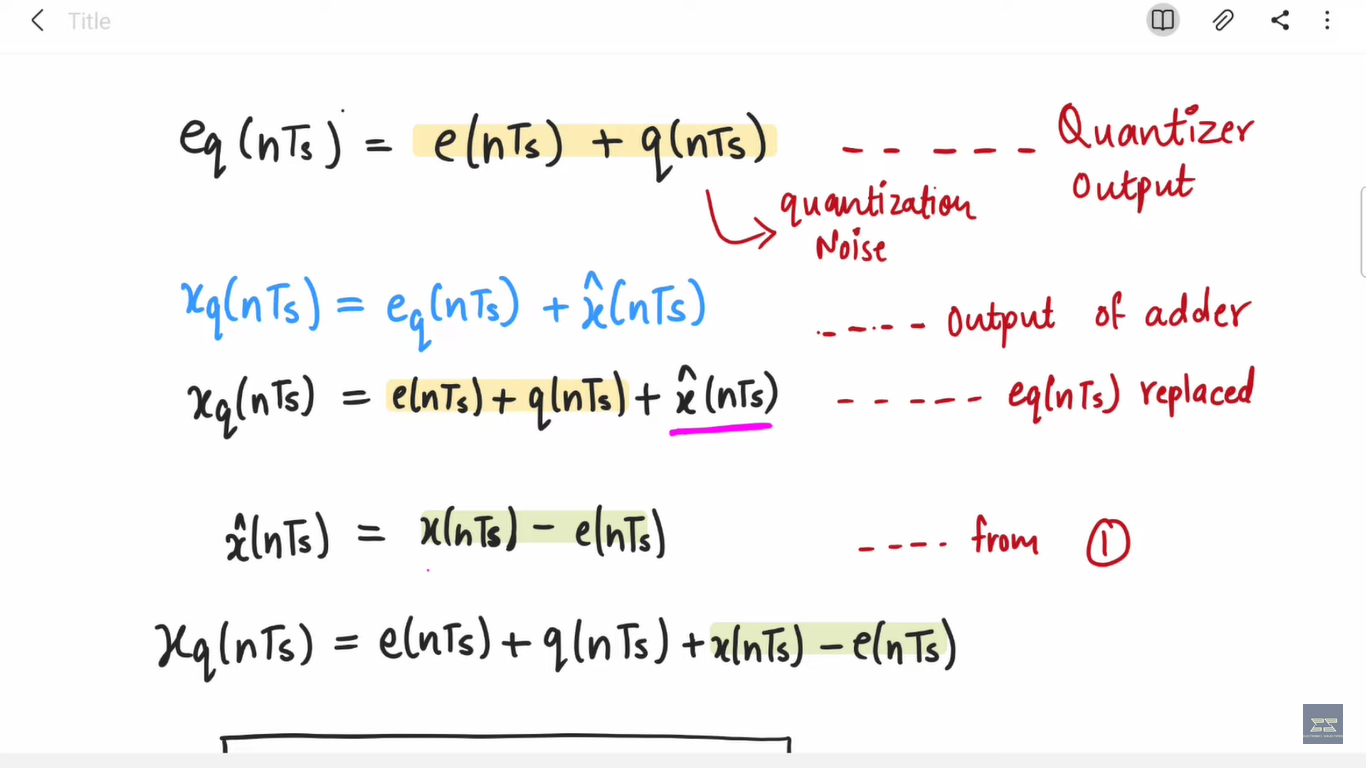 Title
eq(nTs) = e(nTs) + q(nTs) ----- Quantizer Output
quantization Noise
xq(nTs) = eq(nTs) + x̂(nTs) ----- Output of adder
xq(nTs) = e(nTs) + q(nTs) + x̂(nTs) ----- eq(nTs) replaced
x̂(nTs) = x(nTs) - e(nTs) ---- from ①
xq(nTs) = e(nTs) + q(nTs) + x(nTs) - e(nTs)